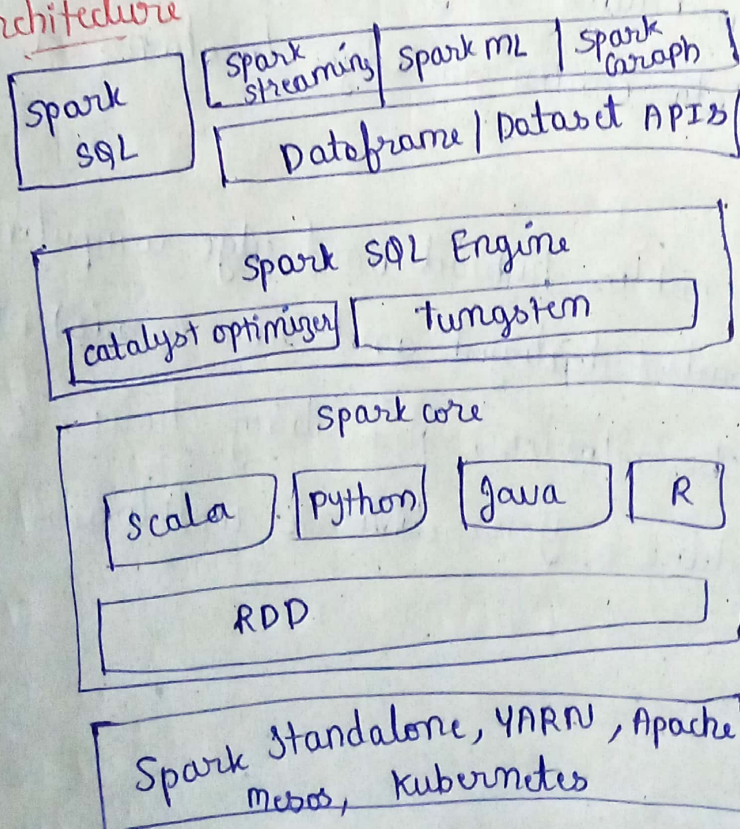 rchitecture
Spark
SQL
Spark
streaming
Spark ML
Spark
Graph
Dataframe / Dataset APIs
Spark SQL Engine
catalyst optimizer
tungsten
Spark core
Scala
Python
Java
R
RDD
Spark Standalone, YARN, Apache
mesos, Kubernetes